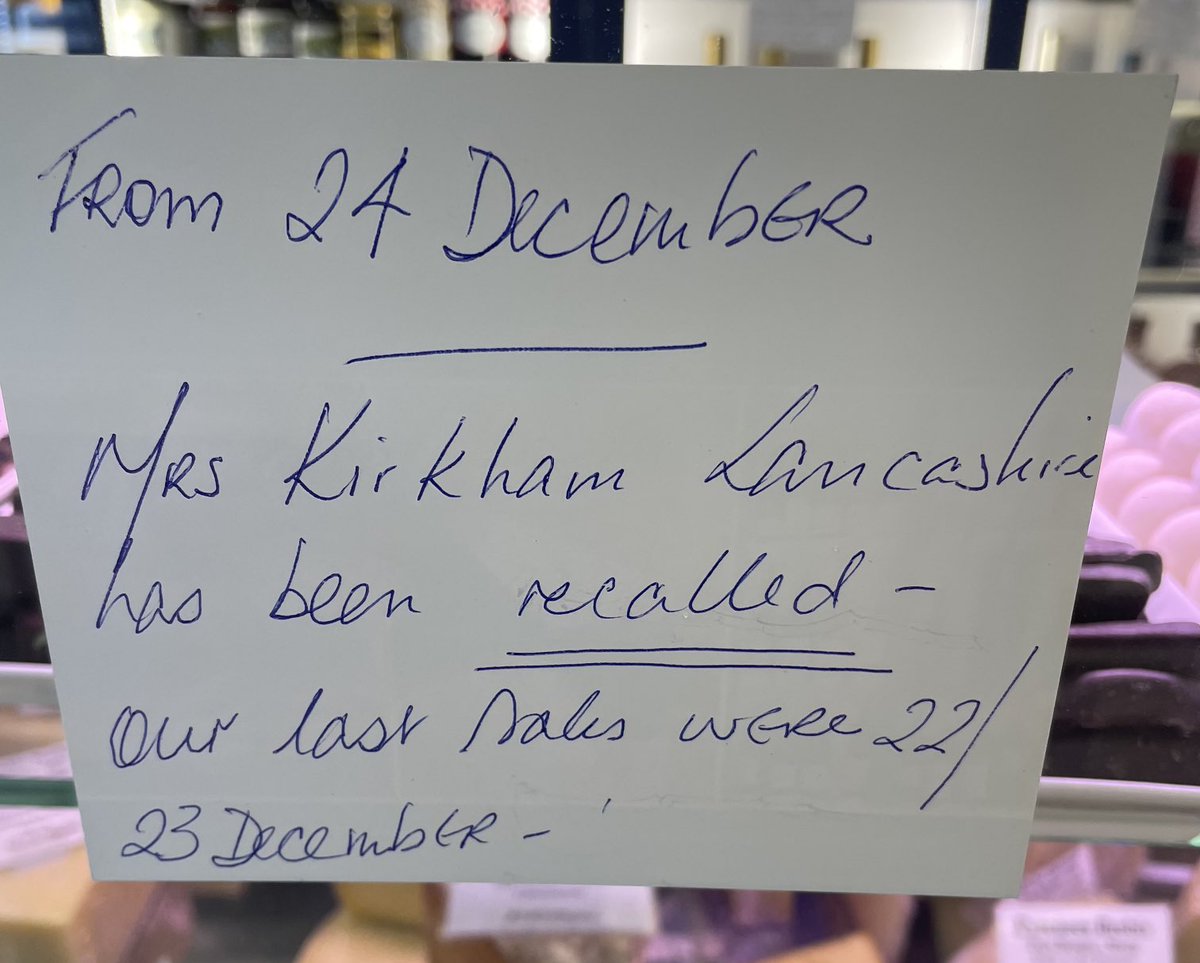 From 24 December
Mrs Kirkham Lancashire
has been recalled -
Our last sales were 22/
23 December -